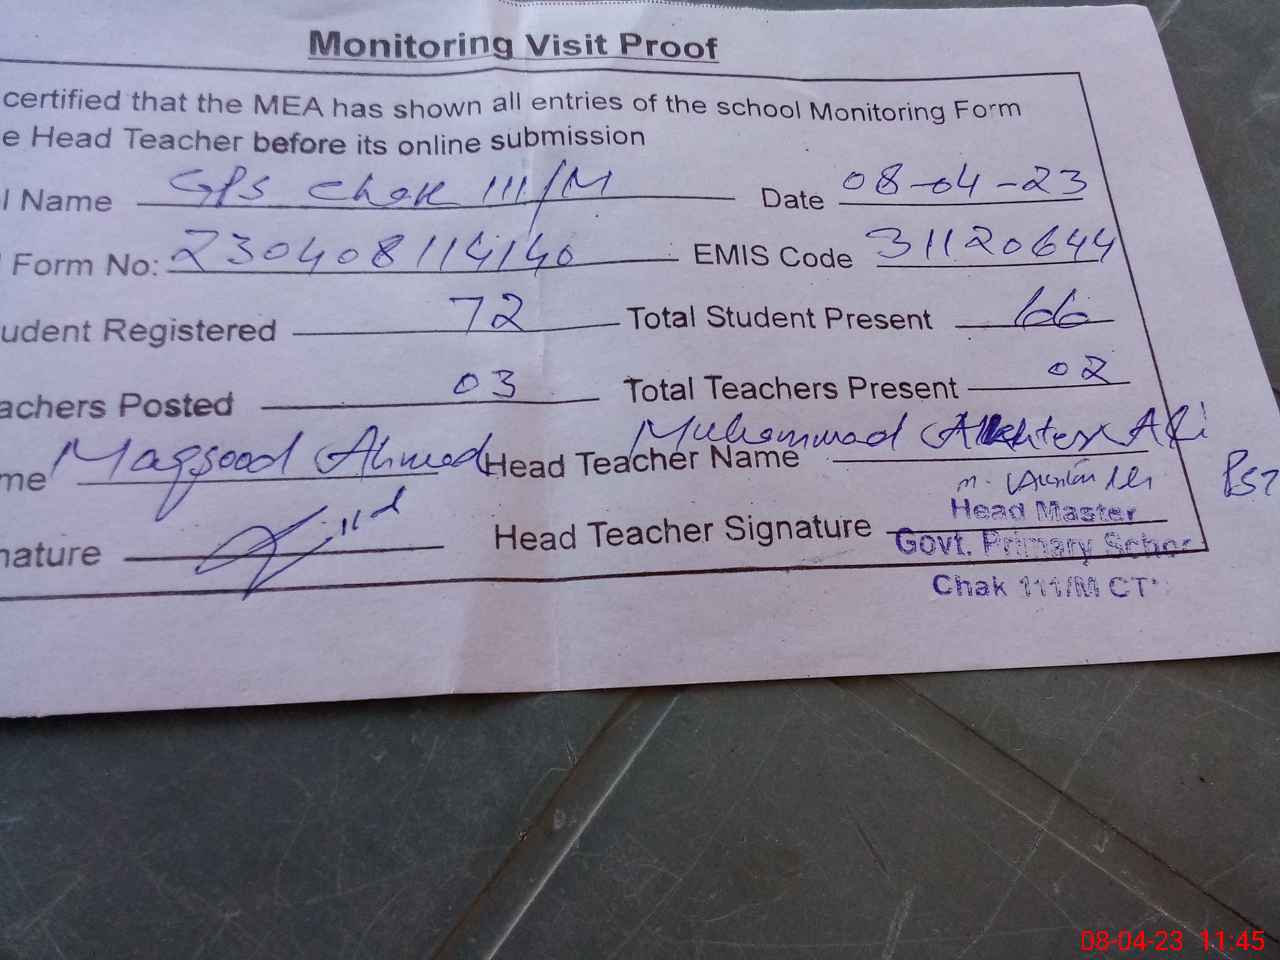 Monitoring Visit Proof
certified that the MEA has shown all entries of the school Monitoring Form
e Head Teacher before its online submission
l Name GPS Chak 111/M Date 08-04-23
Form No: 230408114140 EMIS Code 31120644
udent Registered 72 Total Student Present 66
achers Posted 03 Total Teachers Present 02
me Maqsood Ahmed Head Teacher Name Muhammad Akhter Ali
nature Head Teacher Signature
Head Master
Govt. Primary Schoo
Chak 111/M CT
08-04-23 11:45